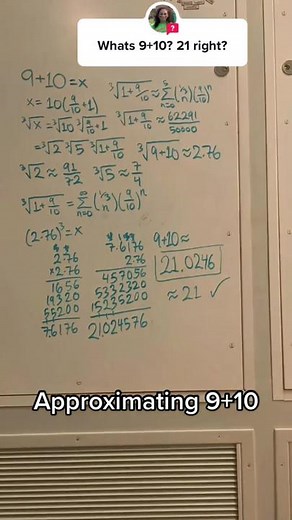 Whats 9+10? 21 right?
9+10=x
x=10(9/10+1)
³√x=³√10 ³√(9/10+1)
=³√2 ³√5 ³√(1+9/10)
³√2≈91/72 ³√5≈7/4
³√(1+9/10)=∑n=0^∞(1/3 n)(9/10)ⁿ
³√(1+9/10)≈∑n=0^5(1/3 n)(9/10)ⁿ
³√(1+9/10)≈62291/50000
³√(9+10)≈2.76
(2.76)³=x
2.76
×2.76
1656
19320
55200
7.6176
7.6176
2.76
457056
5332320
15235200
21.024576
9+10≈
21.0246
≈21 ✓
Approximating 9+10